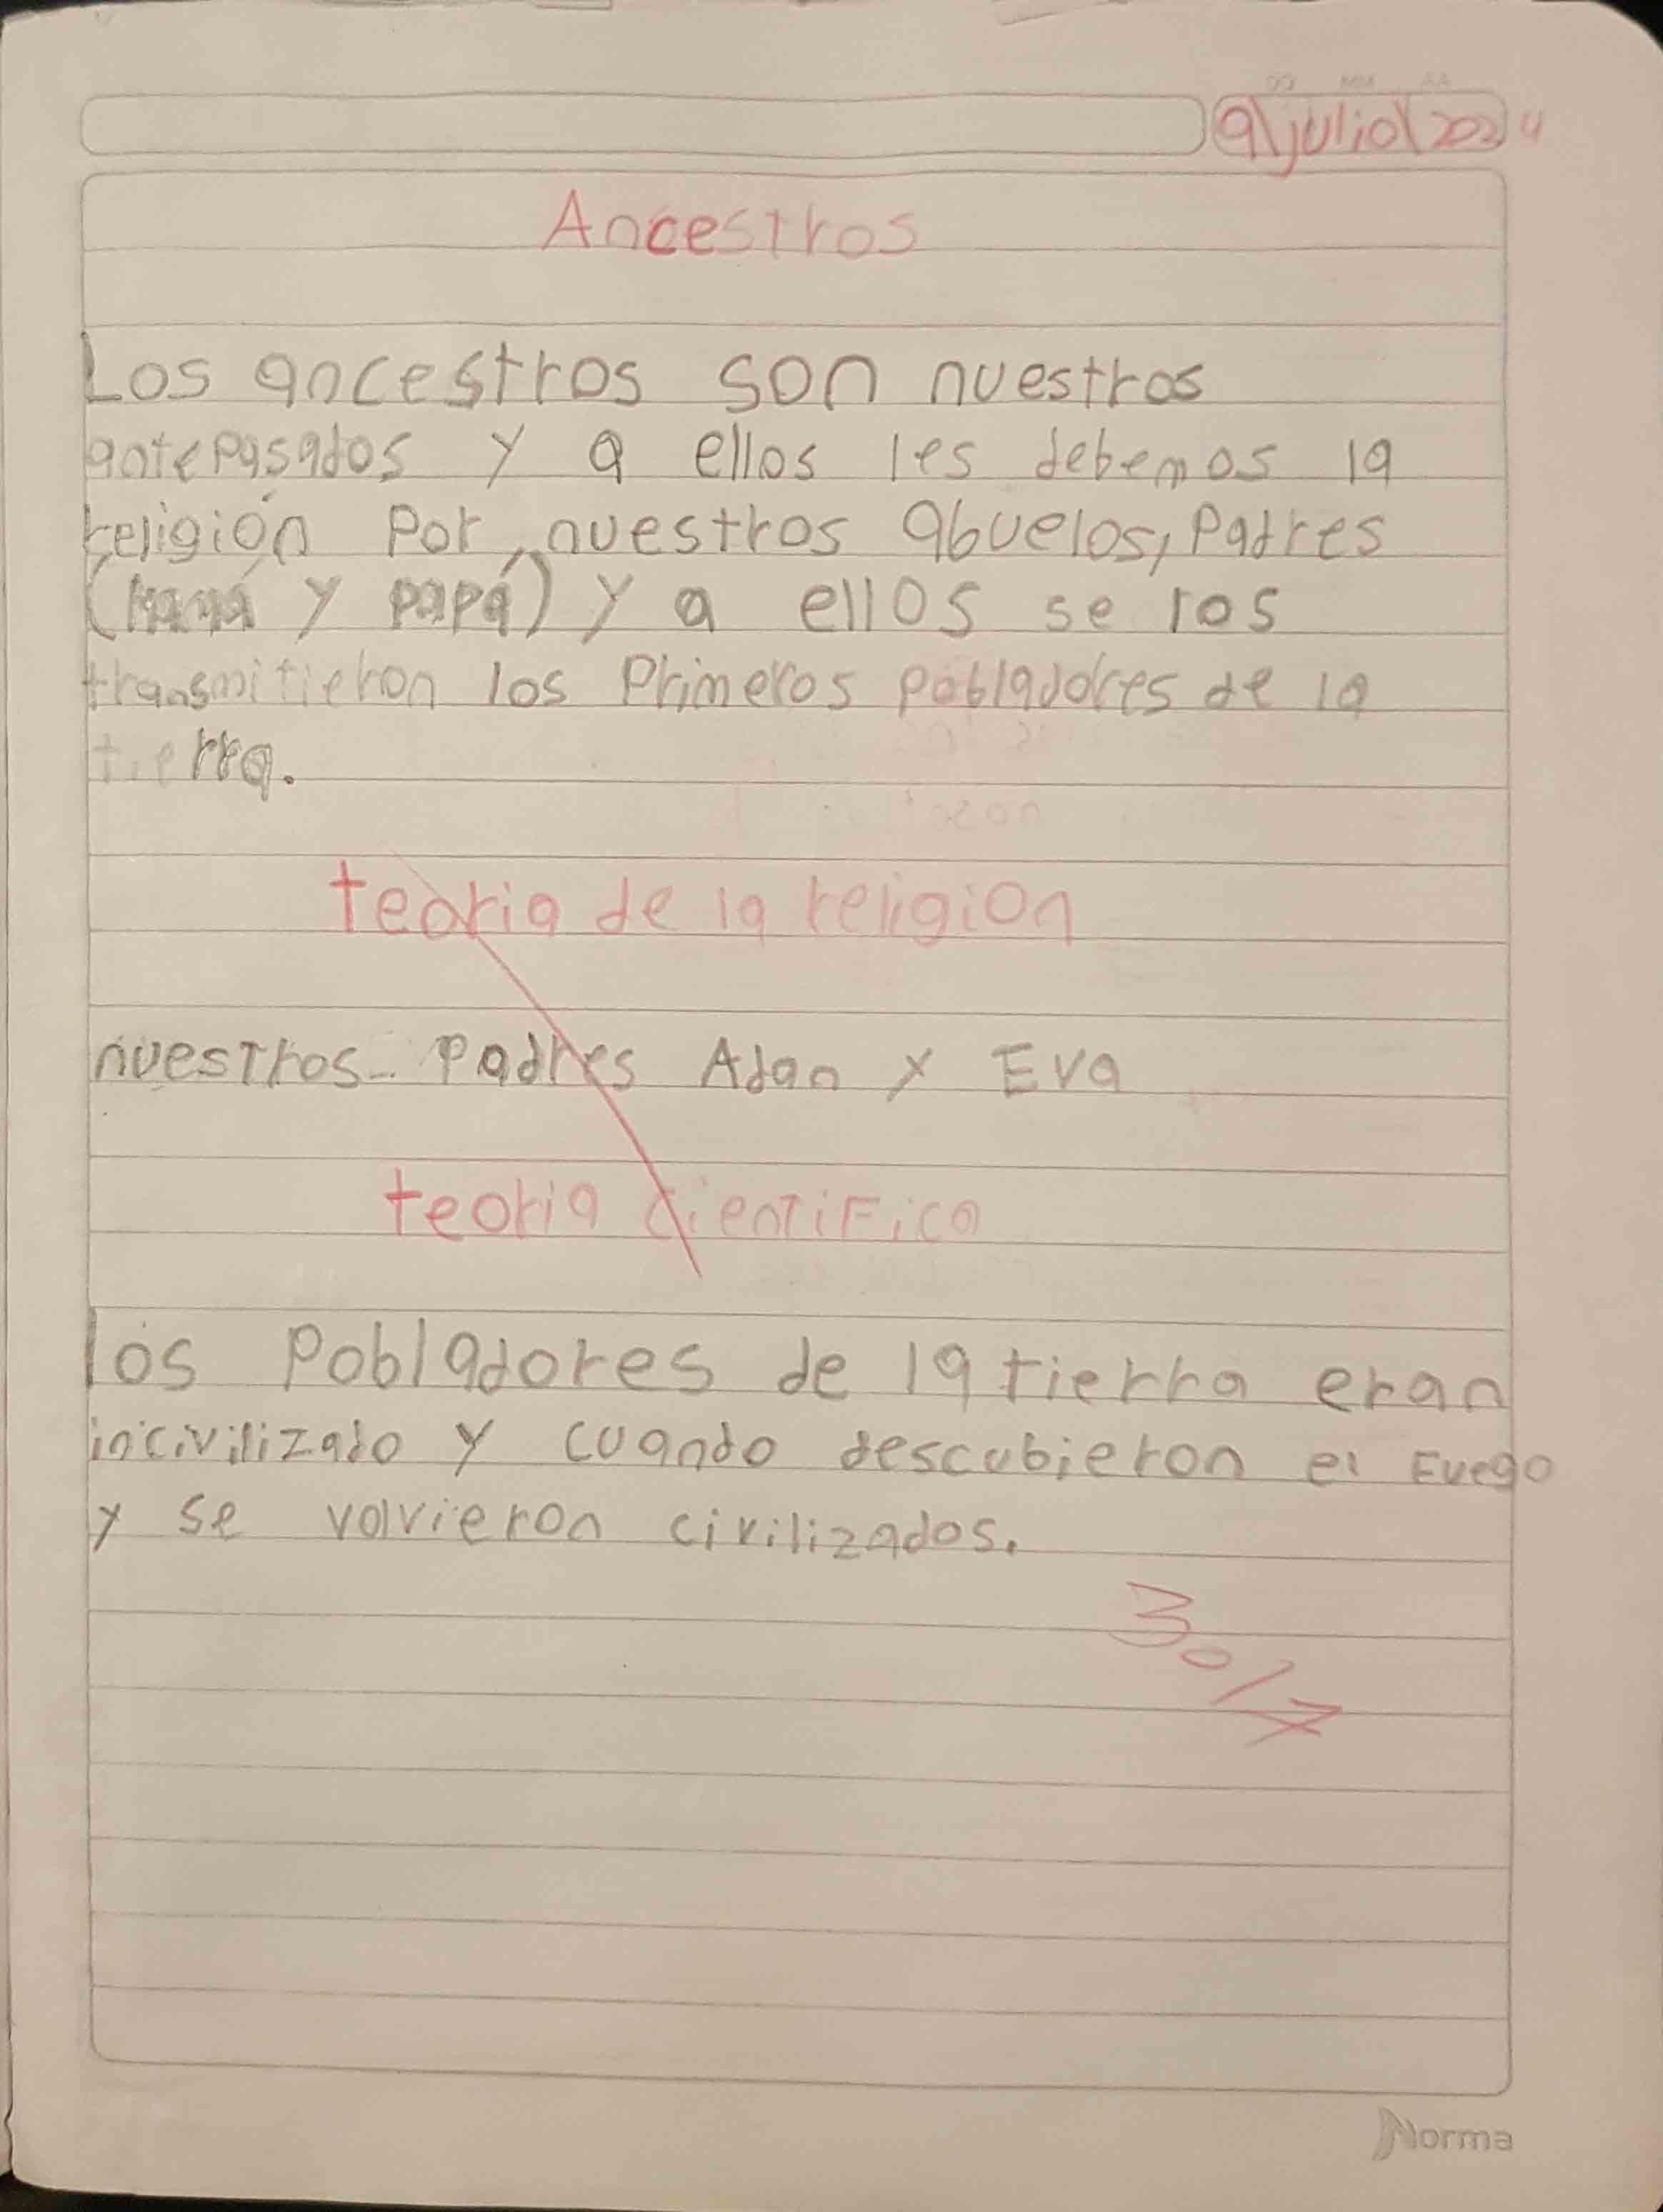 DD MM AA
9\julio\2024
Ancestros
Los ancestros son nuestros
antepasados y a ellos les debemos la
religión por, nuestros abuelos, Padres
(mamá y papá) y a ellos se los
transmitieron los Primeros pobladores de la
tierra.
teoria de la religion
nuestros Padres Adan y Eva
teoria cientiFica
los Pobladores de la tierra eran
incivilizado y cuando descubieron el Fuego
y se volvieron civilizados.
Norma